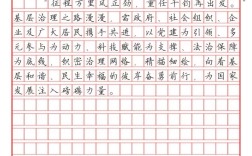 "征程万里风正劲，重任千钧再出发。"
基层治理之路漫漫，需政府、社会组织、企
业及广大居民携手共进，以党建为引领，多
元参与为动力，科技赋能为支撑，法治保障
为底线，织密治理网络，精描细绘，向着基
层和谐、民生幸福的彼岸奋勇前行，为国家
发展注入磅礴力量。